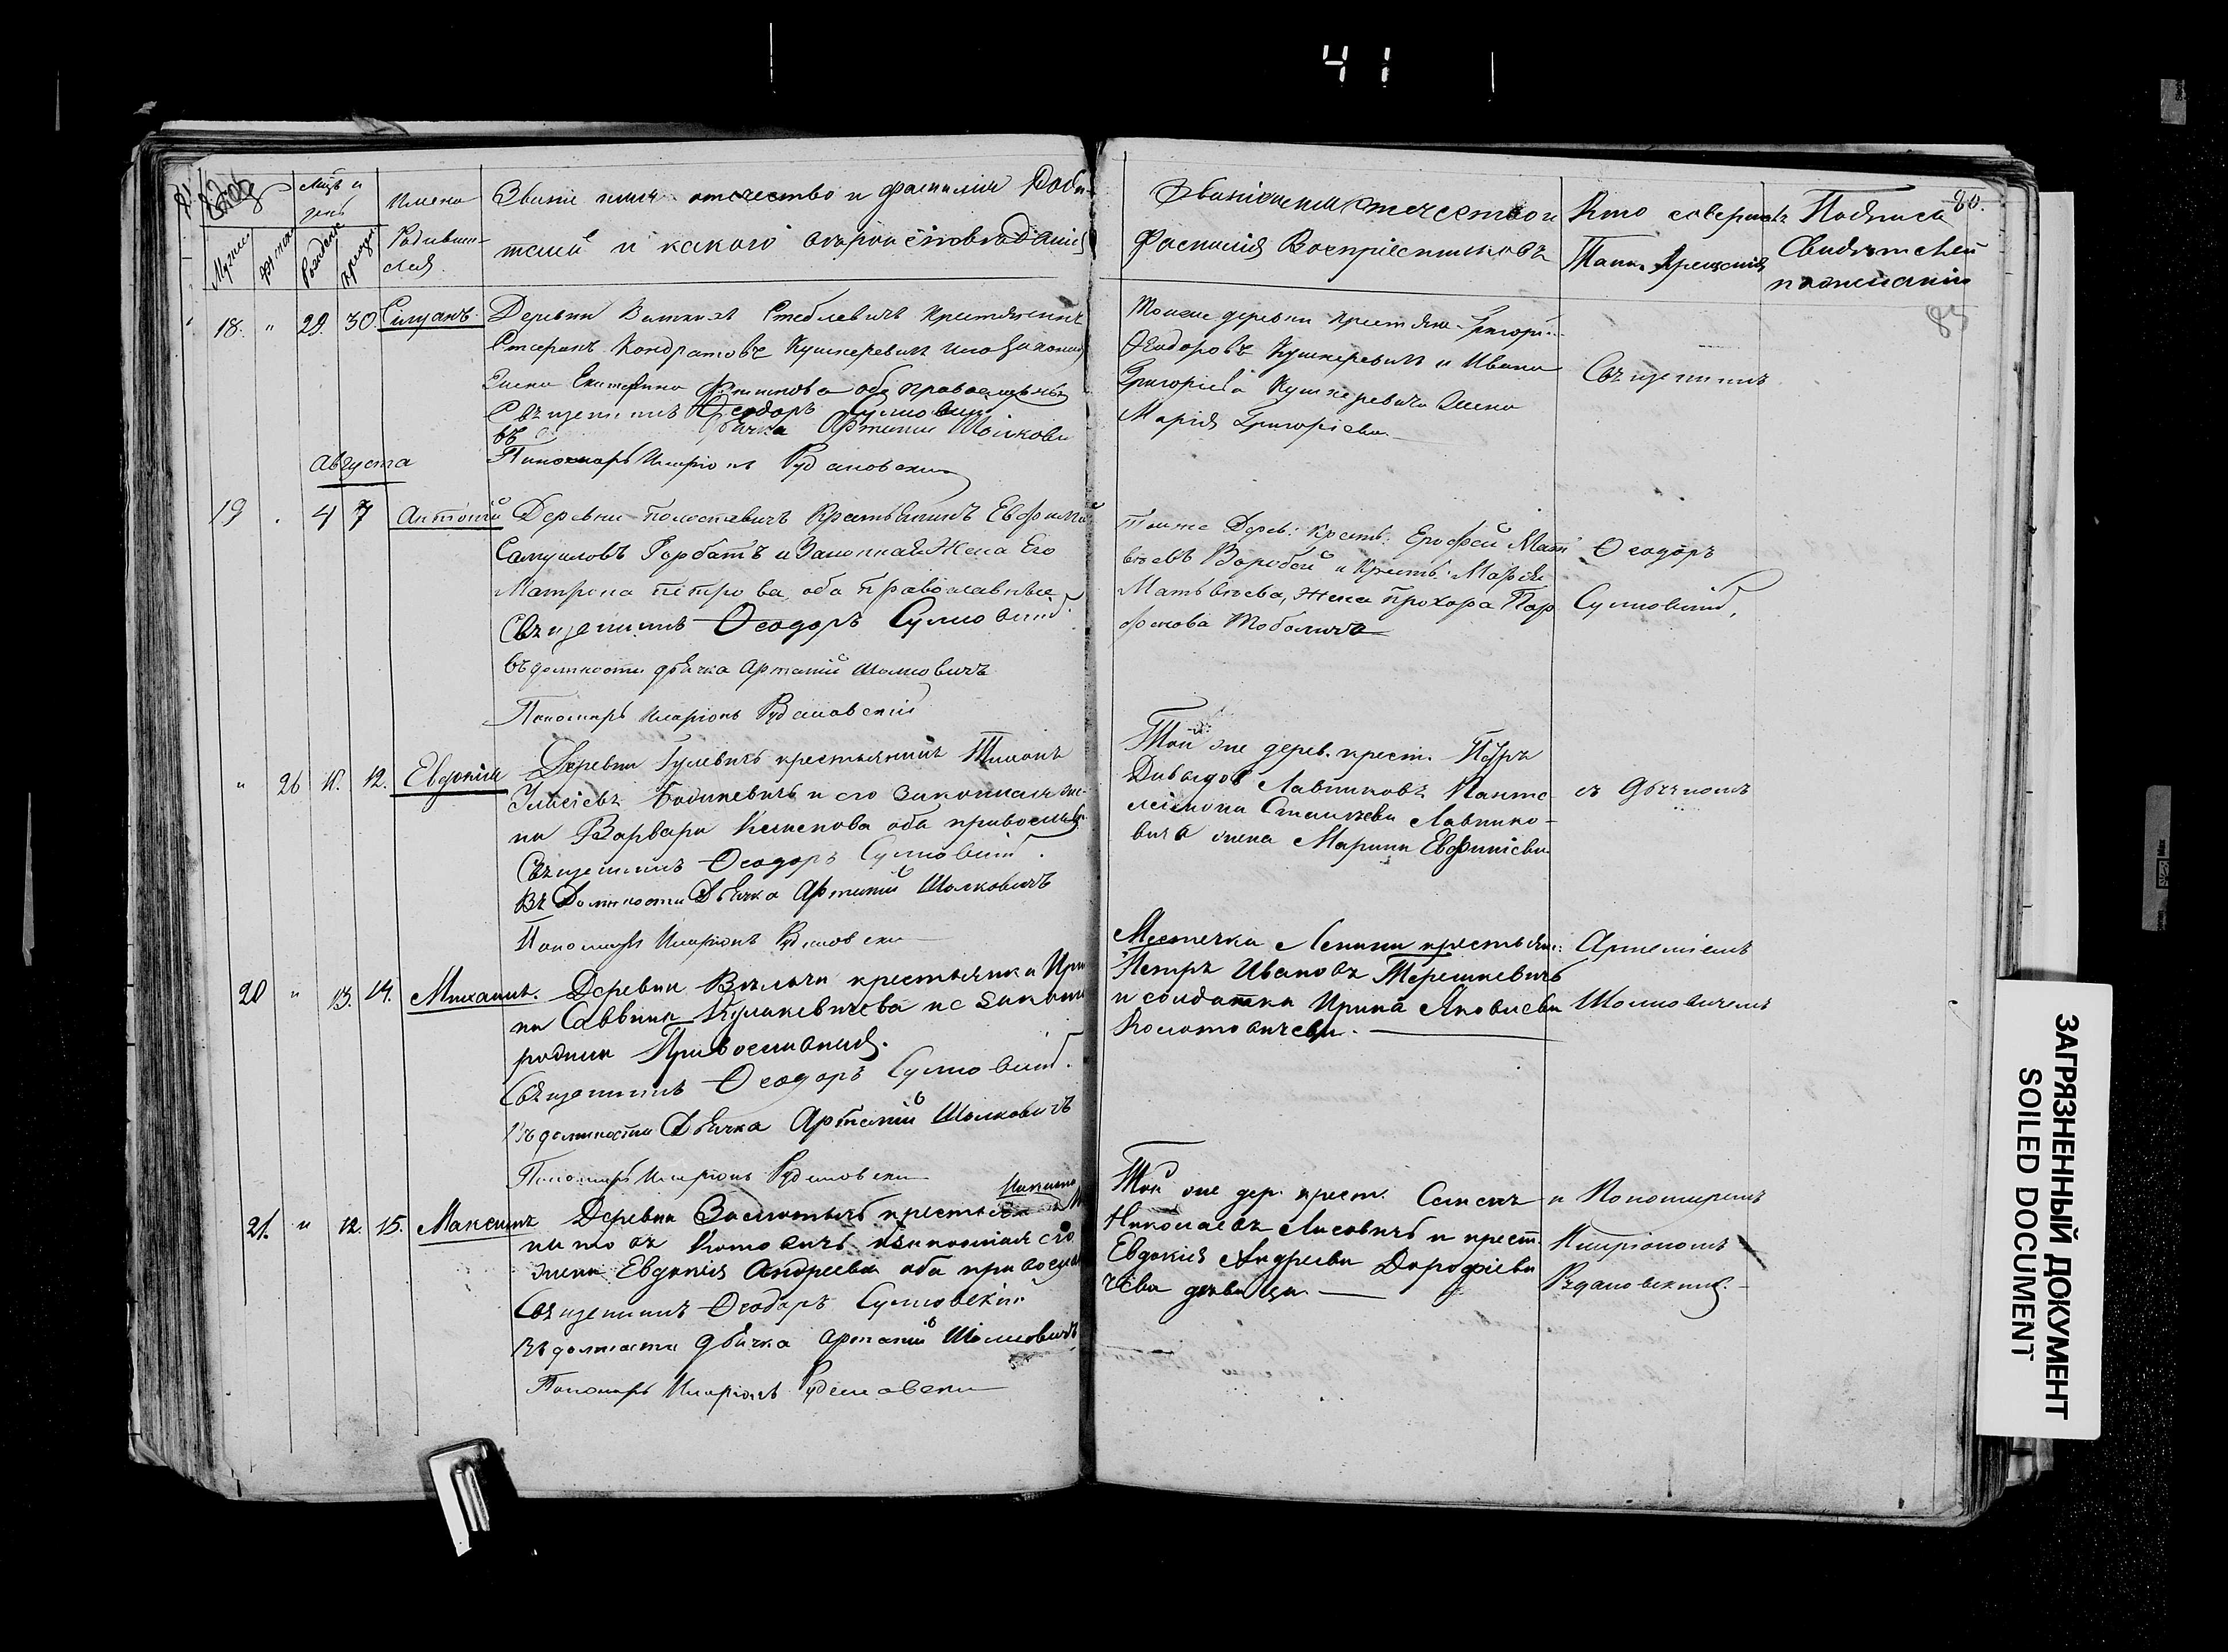 41
80.
83
Счетъ
Мужск.
Женска
Мцъ и
день
Рожденія
крещенія
Имена
Родивши-
хся.
Званіе имя отечество и фамилія Роди-
телей и какого вѣроисповѣданія
Званіе имя отечество и
Фамилія Воспріемниковъ
Кто совершалъ
Таин. Крещенія
Подписи
Свидѣтелей
по желанію
18. " 29. 30. Силуанъ.
Деревни Стеблевичъ крестьянинъ
Стефанъ Кондратовъ Кушнеревичъ и его законная
Жена Екатерина Филипова оба православны
Священникъ Ѳеодоръ Сулковскій
въ дьячка Артемій Шолкови
Пономарь Иларіонъ Рудановски
Тойже деревни крестьяне Григорі
Ѳеодоровъ Кушнеревичъ и Ивана
Григоріева Кушнеревича жена
Марія Григоріева
Священникъ
Августа
19 . 4 7 Антоній
Деревни Полстевичъ Крестьянинъ Евфимій
Самуиловъ Горбатъ и Законная Жена Его
Матрона Петрова, оба Православные
Священникъ Ѳеодоръ Сулковскій.
въ должности дьячка Артемій Шолковичъ
Пономарь Иларіонъ Рудановскій
Тойже Дерев: Крест: Ерофей Мат
вѣевъ Воробей и Крестъ: Марія
Матвѣева, Жена Прохора Пар
фенова Тоболича
Ѳеодоръ
Сулковскій,
" 26 11. 12. Евдокія
Деревни Гулевичъ крестьянинъ Тимонъ
Елисіевъ Бодиневичъ и его законная же-
на Варвара оба православ
Священникъ Ѳеодоръ Сулковскій.
Въ Должности Дьячка Артемій Шолковичъ
Пономарь Иларіонъ Рудановски
Той же дерев. крест. Петръ
Давыдовъ Лавниковъ Панте-
леимона Лавнико-
вича жена Марина Евфиміева
съ Дьячкомъ
20 " 13. 14. Михаилъ.
Деревни крестьянка Ири
на Саввина Кулакевичева не закон
родила Православная.
Священникъ Ѳеодоръ Сулковскій.
Въ должности Дьячка Артемій Шолковичъ
Пономарь Иларіонъ Рудановски
Местечка Ленина крестьян:
Петръ Ивановъ Терешкевичъ
и солдатка Ирина Яковлева
Колотовичева.
Артеміемъ
Шолковичемъ
21. " 12. 15. Максимъ
Деревни крестьян
Котовичъ и законная его
жена Евдокія Андреева оба православ
Священникъ Ѳеодоръ Сулковскій
Въ должности дьячка Артемій Шолковичъ
Пономарь Иларіонъ Рудановски
Той же дер. крест. Семенъ
Николаевъ Лисовичъ и крест.
Евдокія Андреева Дорофіеви
чева девица.
и Пономаремъ
Иларіономъ
Рудановскимъ.
ЗАГРЯЗНЕННЫЙ ДОКУМЕНТ
SOILED DOCUMENT